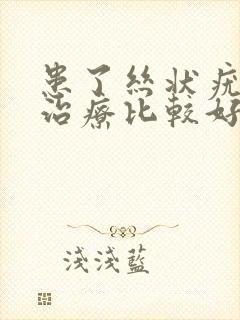 患了絲狀疣
治療比較好
淺淺藍